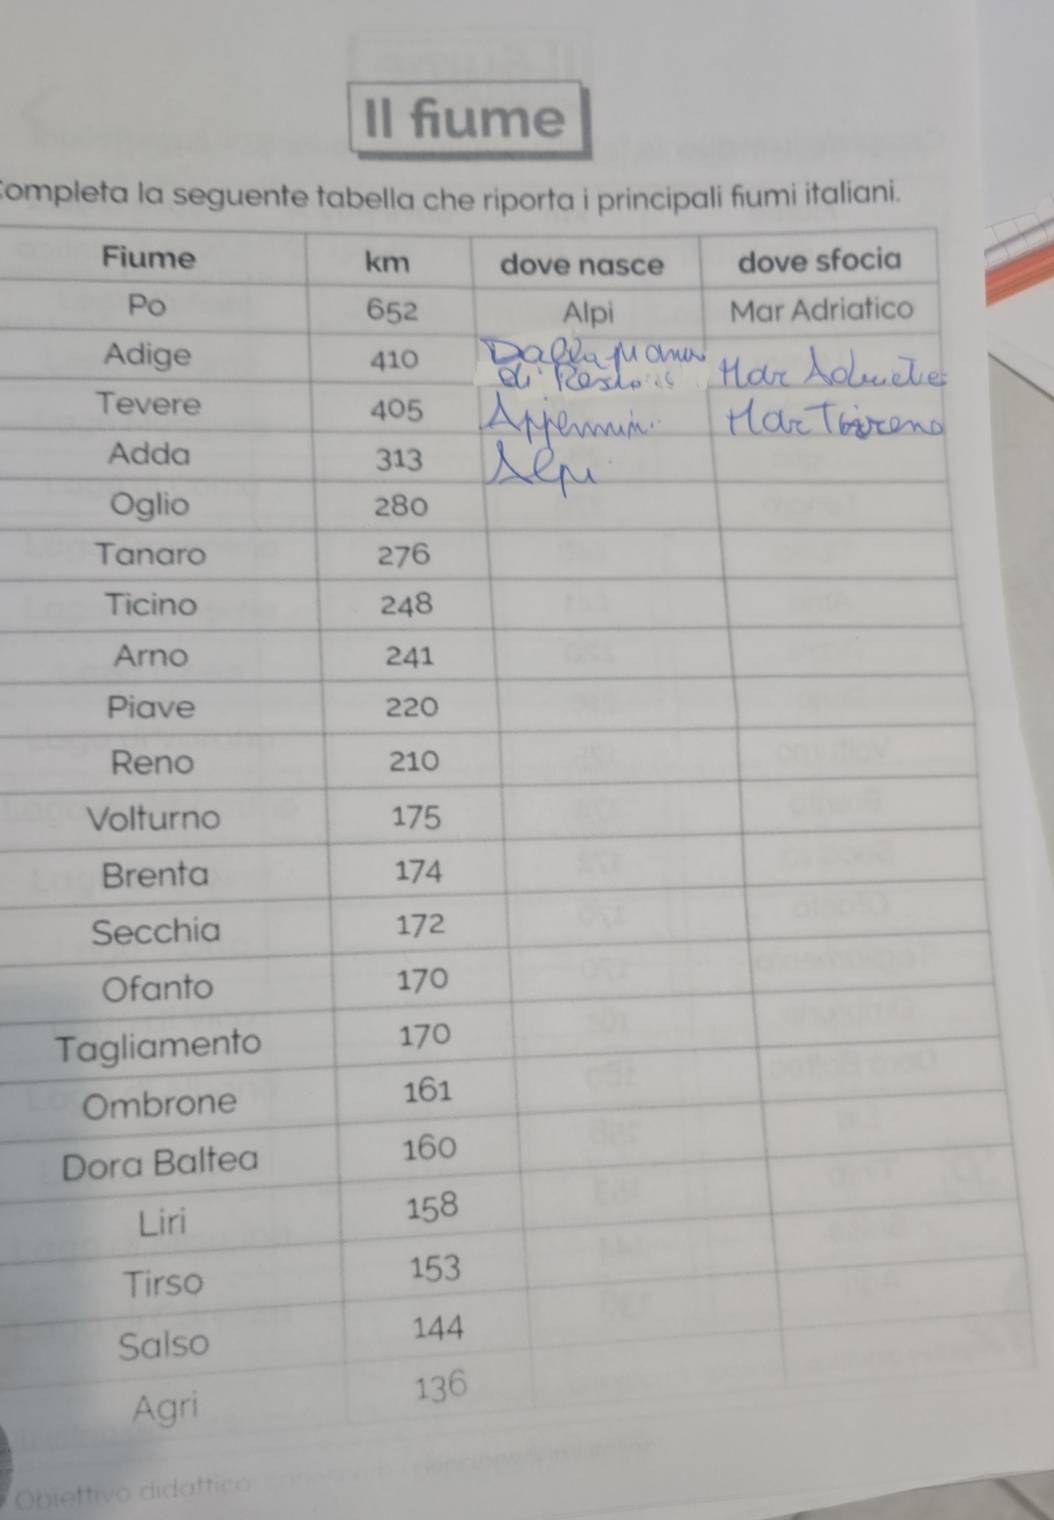 Il fiume
Completa la seguente tabella che riporta i principali fiumi italiani.
Fiume km dove nasce dove sfocia
Po 652 Alpi Mar Adriatico
Adige 410 Dalla
di Mar
Tevere 405 Appennini Mar Tirreno
Adda 313 Alpi
Oglio 280
Tanaro 276
Ticino 248
Arno 241
Piave 220
Reno 210
Volturno 175
Brenta 174
Secchia 172
Ofanto 170
Tagliamento 170
Ombrone 161
Dora Baltea 160
Liri 158
Tirso 153
Salso 144
Agri 136
Obiettivo didattico